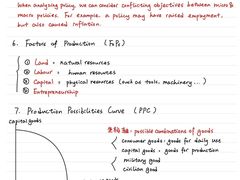 When analysing policy, we can consider conflicting objectives between micro &
macro policies. For example, a policy may have caused employment,
but also caused inflation.
6. Factors of Production (FoPs)
① Land = natural resources
② Labour = human resources
③ Capital = physical resources (such as tools, machinery...)
④ Entrepreneurship
7. Production Possibilities Curve (PPC)
capital goods
possible combinations of goods
consumer goods = goods for daily use
capital goods = goods for production
military good
civilian good